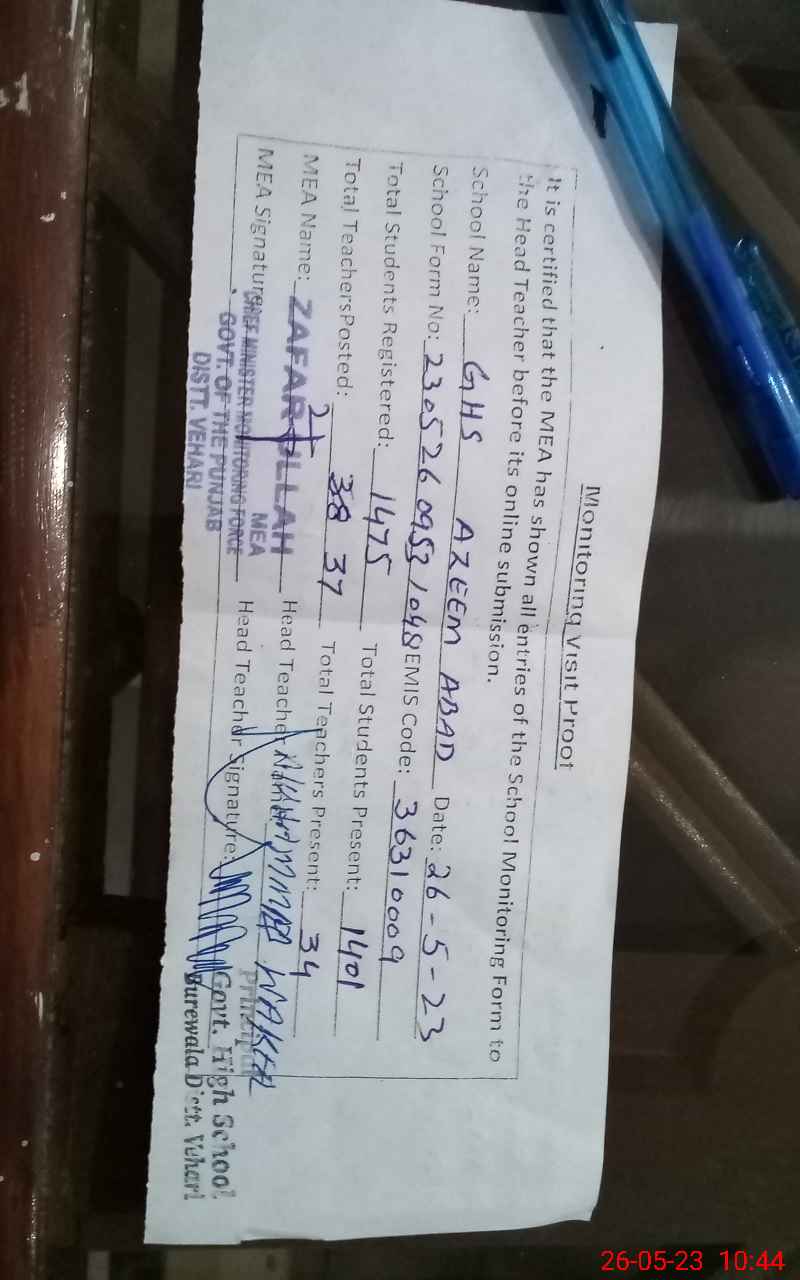 Monitoring Visit Proof
It is certified that the MEA has shown all entries of the School Monitoring Form to
the Head Teacher before its online submission.
School Name: GHS AZEEM ABAD Date: 26-5-23
School Form No: 23052609531048 EMIS Code: 36310009
Total Students Registered: 1475 Total Students Present: 1401
Total TeachersPosted: 38 37 Total Teachers Present: 34
MEA Name: ZAFAR ULLAH Head Teacher
MEA
MEA Signature: CHIEF MINISTER MONITORING FORCE Head Teacher Signature:
GOVT. OF THE PUNJAB
DISTT. VEHARI
Principal
Govt. High School
Burewala Distt. Vehari
26-05-23 10:44